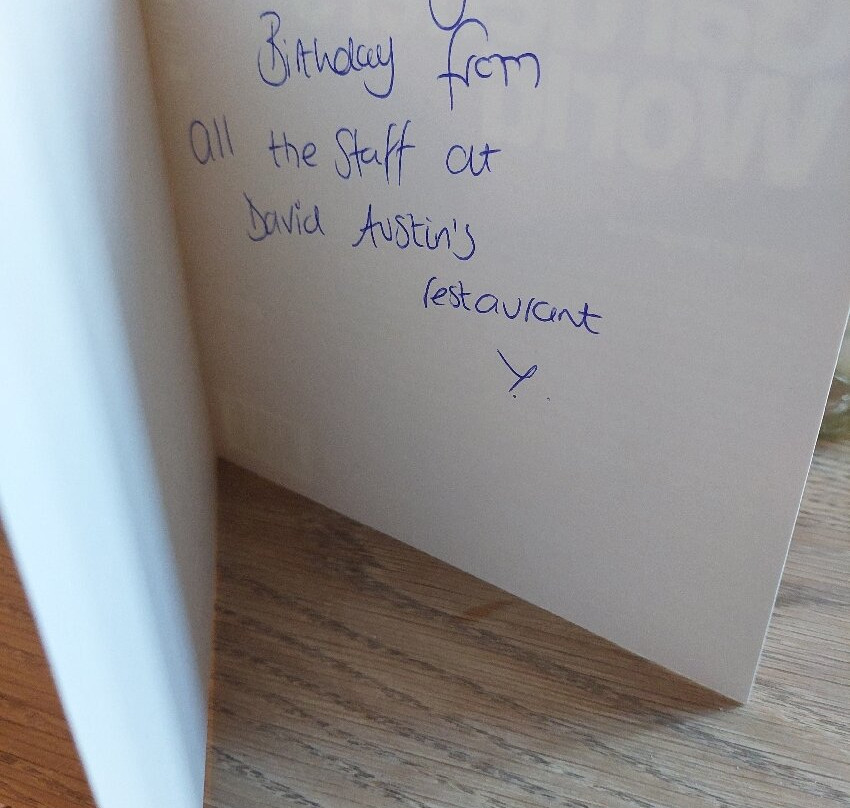 Birthday from
all the Staff at
David Austin's
restaurant
x